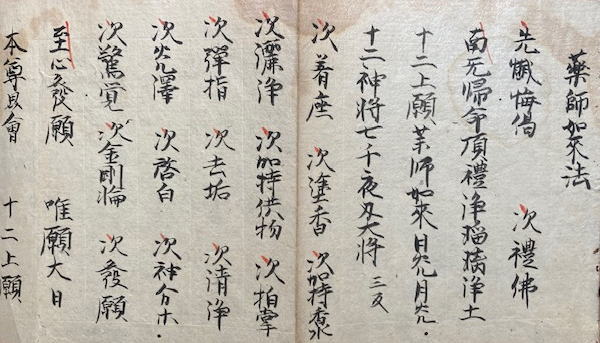 藥師如來法
先懺悔偈 次禮佛
南无歸命頂禮浄瑠璃浄土
十二上願藥師如來日光月光
十二神将七千夜叉大将 三反
次着座 次塗香 次加持香水
次灑浄 次加持供物 次拍掌
次彈指 次去垢 次清浄
次光澤 次啓白 次神分ホ
次驚覚 次金剛輪 次發願
至心發願 唯願大日
本尊界會 十二上願